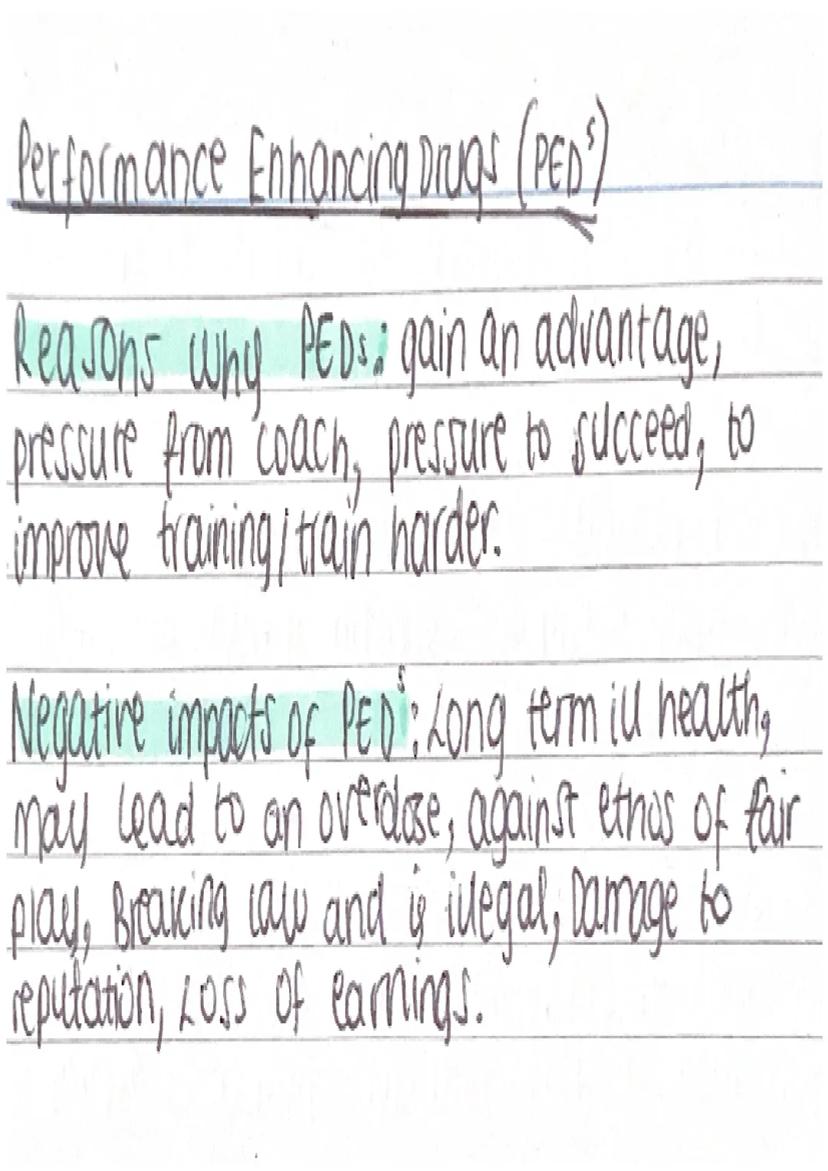 Performance Enhancing Drugs (PEDs)
Reasons why PEDs: gain an advantage,
pressure from coach, pressure to succeed, to
improve training/train harder.
Negative impacts of PEDs: Long term ill health,
may lead to an overdose, against ethos of fair
play, Breaking law and is illegal, Damage to
reputation, Loss of earnings.